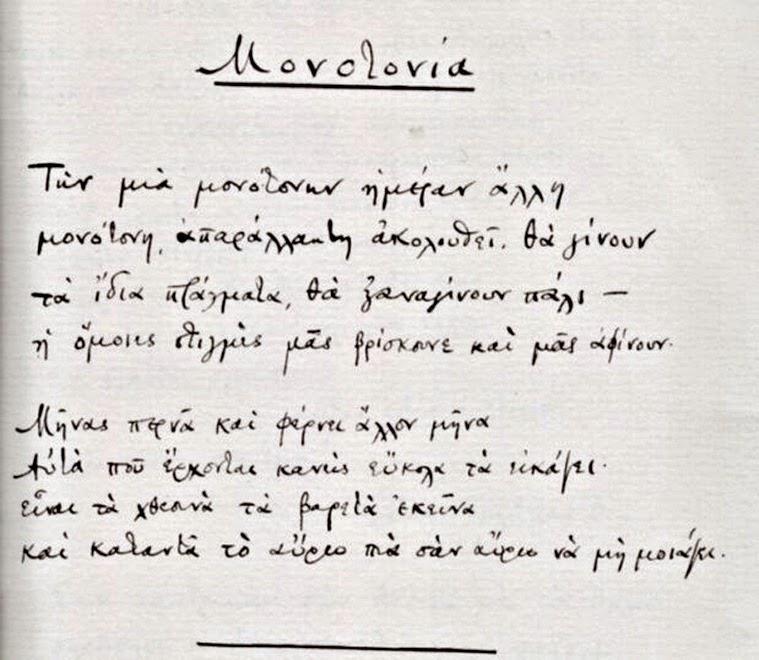 Μονοτονία
Τὴν μιὰ μονότονην ἡμέραν ἄλλη
μονότονη, ἀπαράλλακτη ἀκολουθεῖ. Θὰ γίνουν
τὰ ἴδια πράγματα, θὰ ξαναγίνουν πάλι —
ἡ ὅμοιες στιγμὲς μᾶς βρίσκουνε καὶ μᾶς ἀφίνουν.
Μῆνας περνᾶ καὶ φέρνει ἄλλον μῆνα
Αὐτὰ ποῦ ἔρχονται κανεὶς εὔκολα τὰ εἰκάζει·
εἶναι τὰ χθεσινὰ τὰ βαρετὰ ἐκεῖνα
καὶ καταντᾶ τὸ αὔριο πιὰ σὰν αὔριο νὰ μὴ μοιάζει.